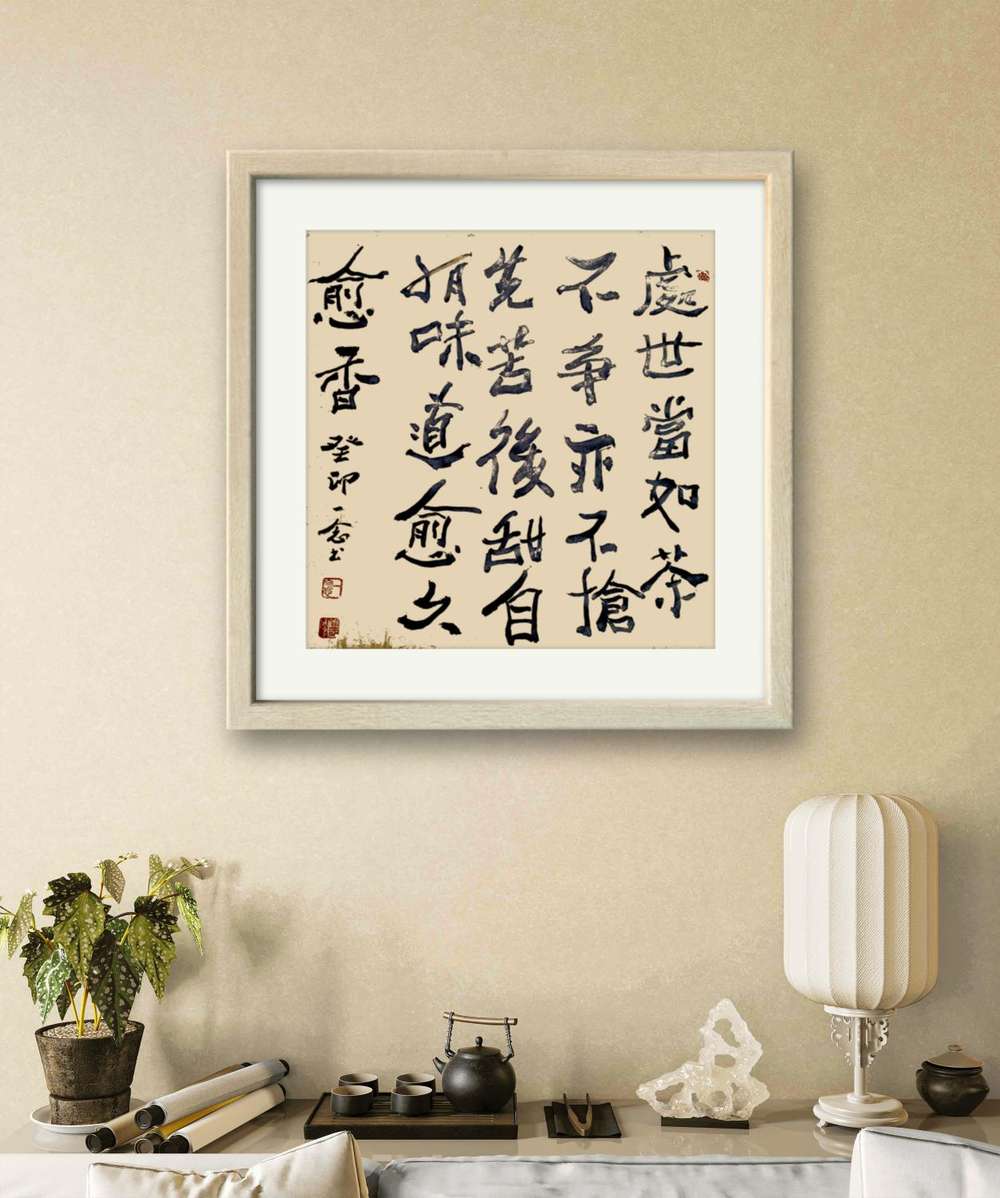 處世當如茶
不爭亦不搶
先苦後甜自
有味道愈久
愈香
癸卯一念書